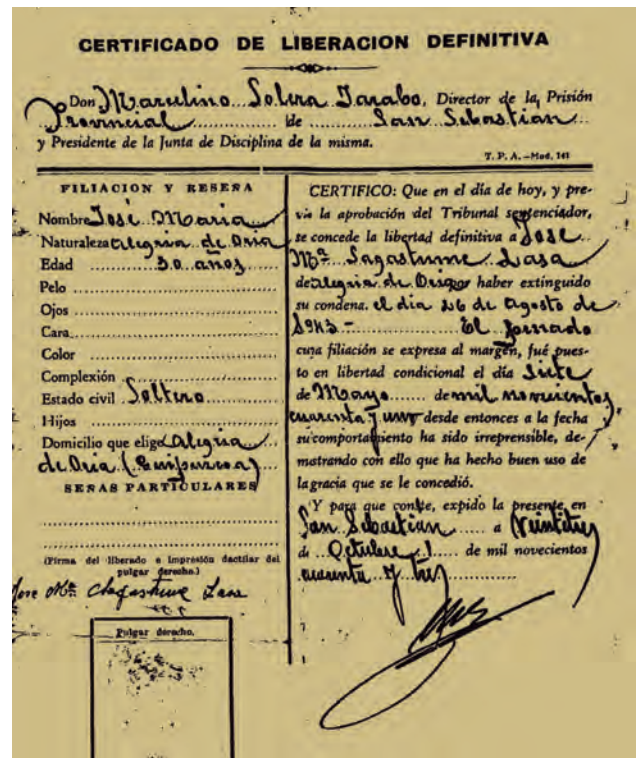 CERTIFICADO DE LIBERACION DEFINITIVA
Don Marcelino Solera Jarabo, Director de la Prisión
Provincial de San Sebastian
y Presidente de la Junta de Disciplina de la misma.
T. P. A.-Mod. 141
FILIACION Y RESEÑA
Nombre José Maria
Naturaleza Alegria de Oria
Edad 30 años
Pelo
Ojos
Cara
Color
Complexión
Estado civil Soltero
Hijos
Domicilio que elige Alegria
de Oria (Guipuzcoa)
SEÑAS PARTICULARES
(Firma del liberado e impresión dactilar del
pulgar derecho.)
Jose Mª Lasa
Pulgar derecho.
CERTIFICO: Que en el día de hoy, y pre-
via la aprobación del Tribunal sentenciador,
se concede la libertad definitiva a Jose
Mª Sagastume Lasa
de Alegria de Oria por haber extinguido
su condena. el dia 26 de Agosto de
1943- El penado
cuya filiación se expresa al margen, fué pues-
to en libertad condicional el día siete
de Mayo de mil novecientos
cuarenta y uno desde entonces a la fecha
su comportamiento ha sido irreprensible, de-
mostrando con ello que ha hecho buen uso de
la gracia que se le concedió.
Y para que conste, expido la presente en
San Sebastian a Veintitres
de Octubre de mil novecientos
cuarenta y tres